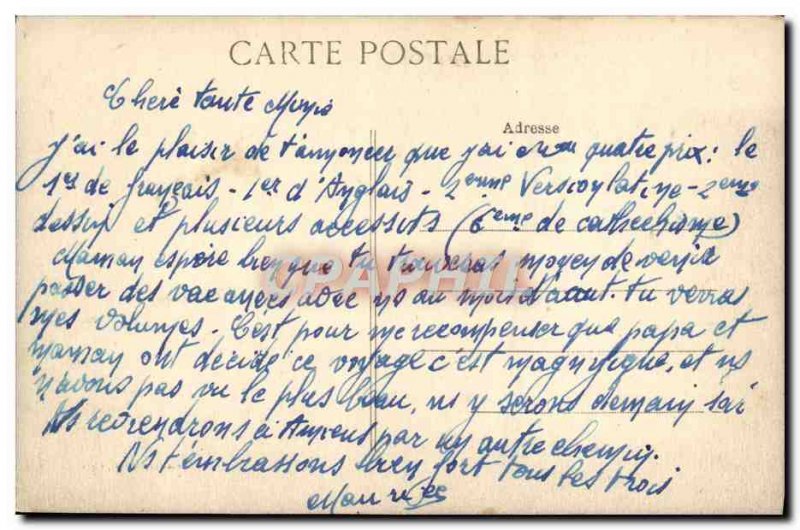 CARTE POSTALE
Chère tante
Adresse
J'ai le plaisir de t'annoncer que j'ai eu quatre prix : le
1er de français - 1er d'Anglais - 2eme Version latine - 2eme
dessin et plusieurs accessits (6eme de cathechisme)
Maman espère bien que tu trouveras moyen de venir
passer des vacances avec ns au mois d'aout. tu verras
mes volumes. C'est pour me recompenser que papa et
maman ont décidé ce voyage c'est magnifique, et ns
n'avons pas vu le plus beau, ns y serons demain soir
Ns reviendrons à Amiens par un autre chemin.
Ns t'embrassons bien fort tous les trois
CPAPHIL